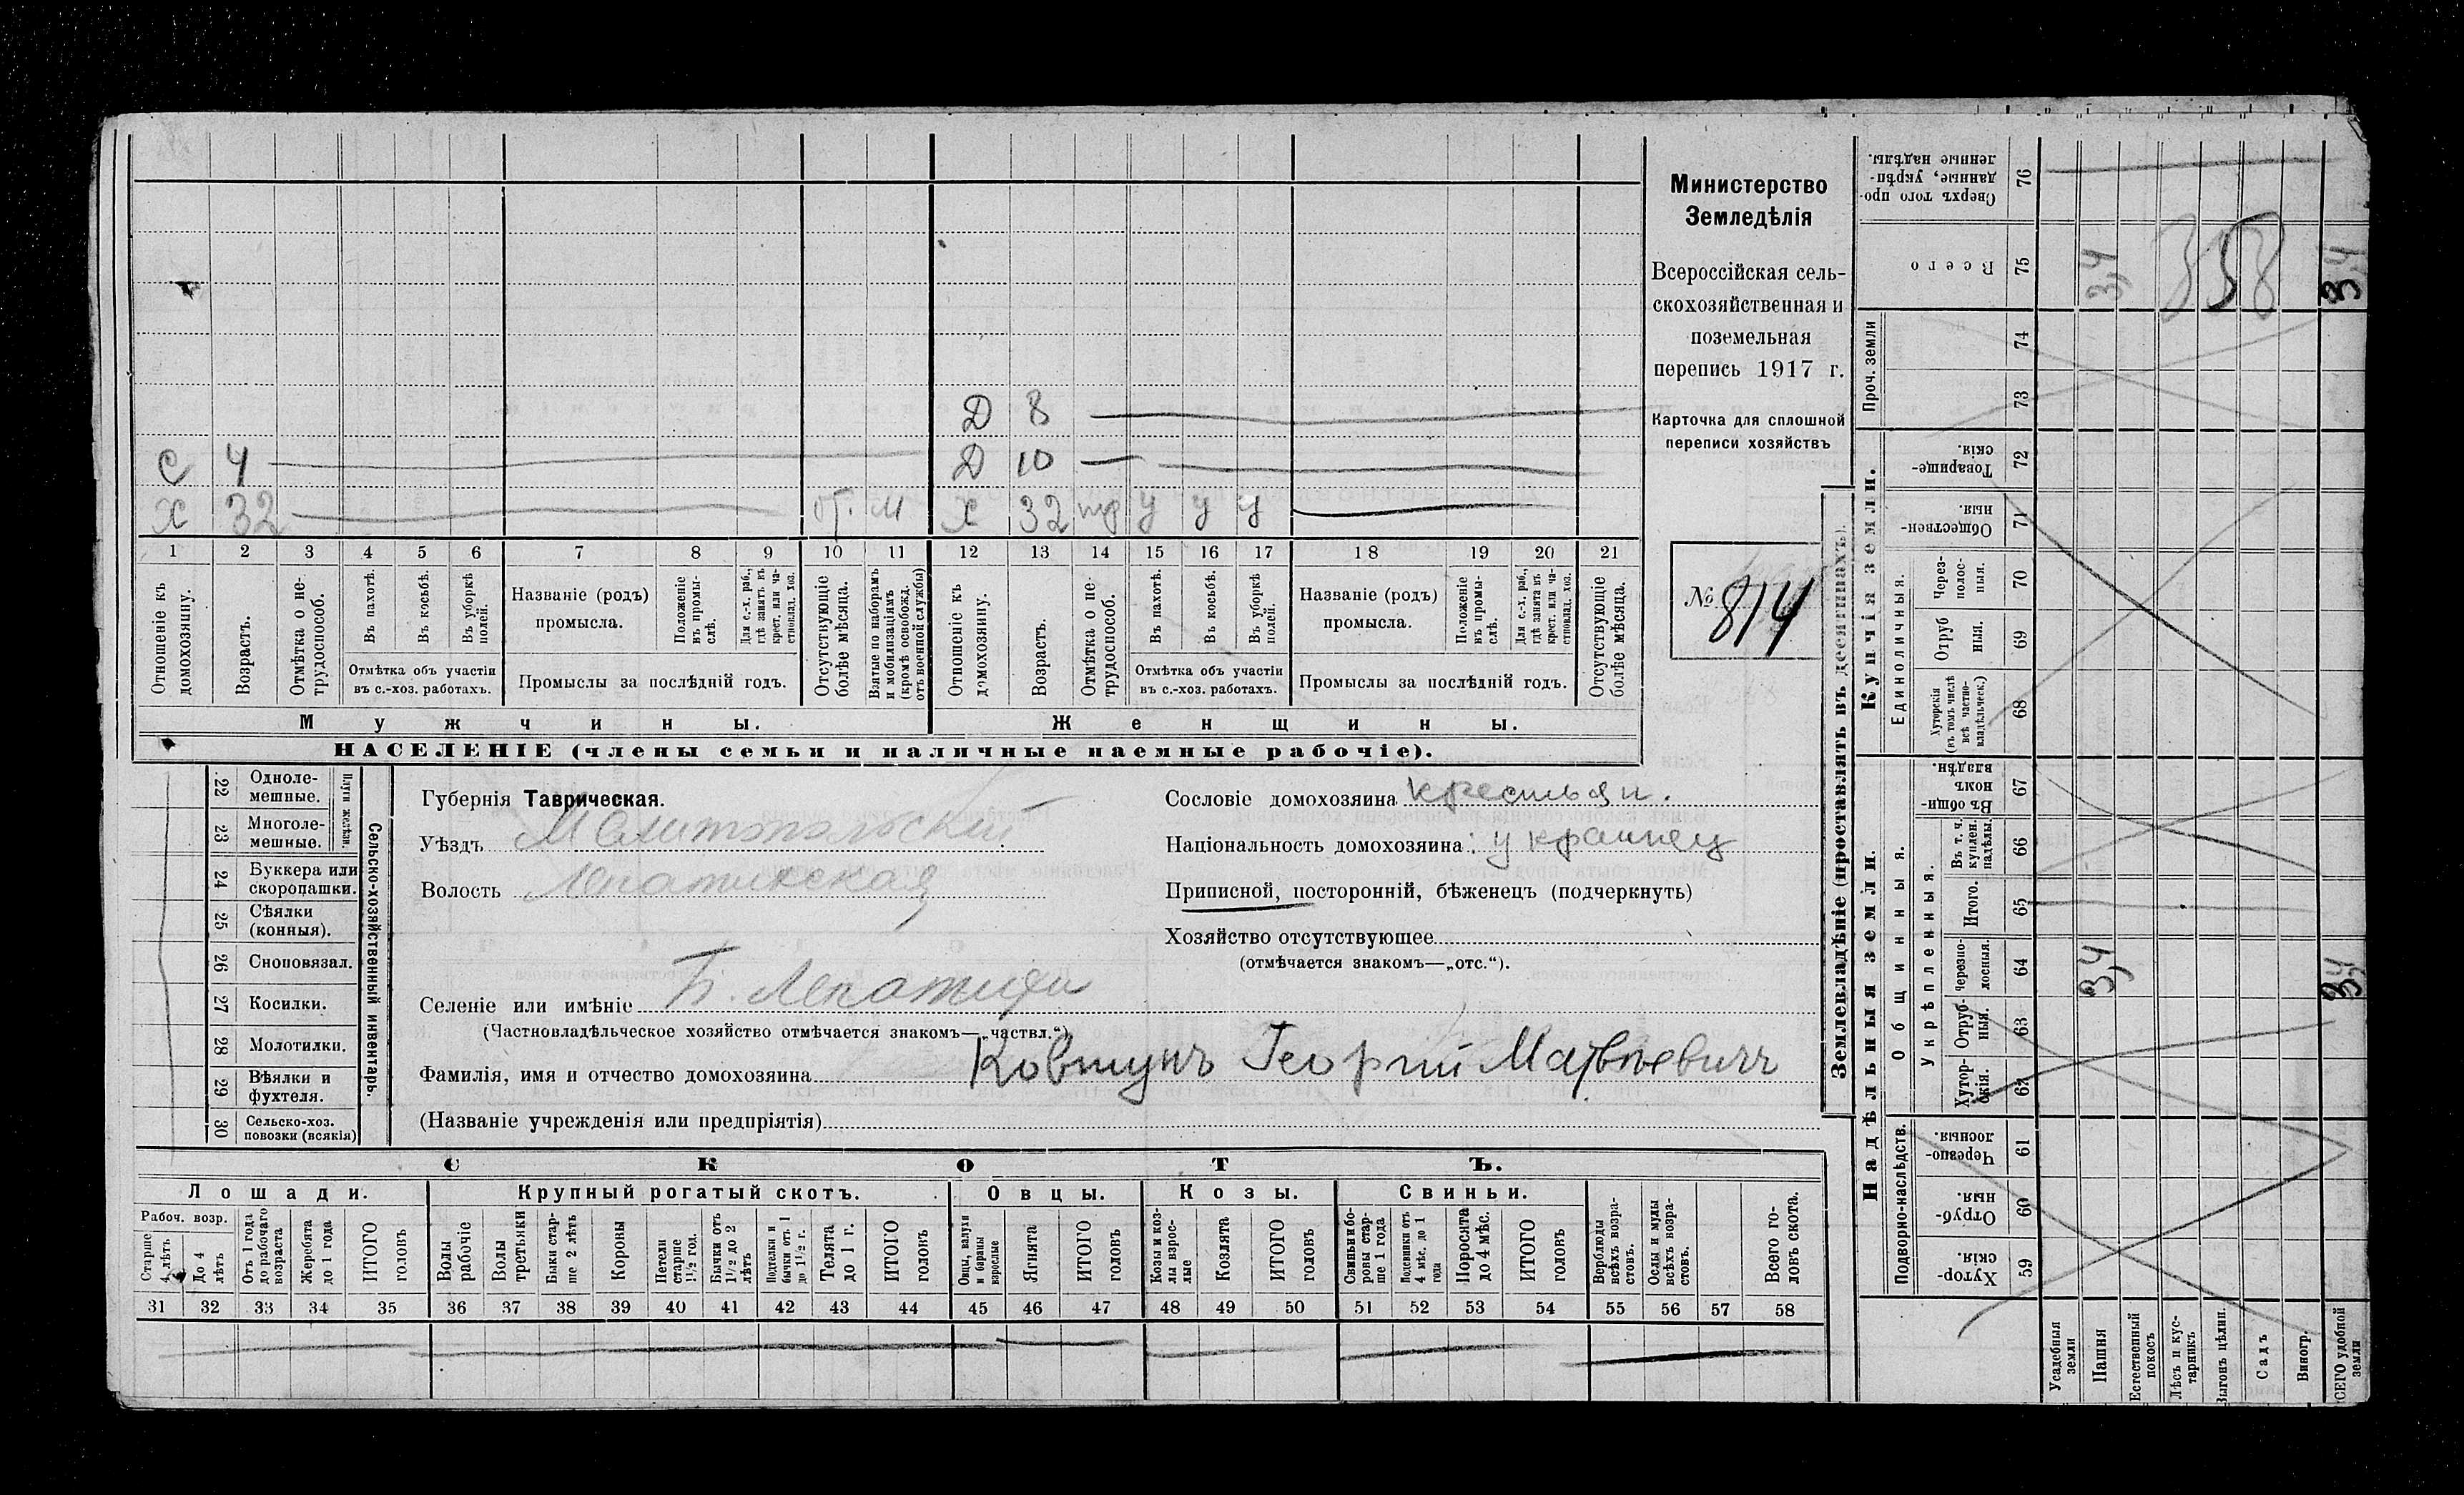 Министерство
Земледѣлія
Всероссійская сель-
скохозяйственная и
поземельная
перепись 1917 г.
Карточка для сплошной
переписи хозяйствъ
№ 814
Д 8
С 4 Д 10
Х 32 от. м Х 32 тр у у у
1 2 3 4 5 6 7 8 9 10 11 12 13 14 15 16 17 18 19 20 21
Отношеніе къ домохозяину.
Возрастъ.
Отмѣтка о не-трудоспособ.
Въ пахотѣ.
Въ косьбѣ.
Въ уборкѣ полей.
Отмѣтка объ участіи въ с.-хоз. работахъ.
Названіе (родъ) промысла.
Положеніе въ промы-слѣ.
Для с.-х. раб., гдѣ занятъ въ крест. или ча-стновлад. хоз.
Промыслы за послѣдній годъ.
Отсутствующіе болѣе мѣсяца.
Взятые по наборамъ и мобилизаціямъ (кромѣ освобожд. отъ военной службы)
Отношеніе къ домохозяину.
Возрастъ.
Отмѣтка о не-трудоспособ.
Въ пахотѣ.
Въ косьбѣ.
Въ уборкѣ полей.
Отмѣтка объ участіи въ с.-хоз. работахъ.
Названіе (родъ) промысла.
Положеніе въ промы-слѣ.
Для с.-х. раб., гдѣ занята въ крест. или ча-стновлад. хоз.
Промыслы за послѣдній годъ.
Отсутствующіе болѣе мѣсяца.
Мужчины. Женщины.
НАСЕЛЕНІЕ (члены семьи и наличные наемные рабочіе).
22 Одноле-мешные.
23 Многоле-мешные.
Плуги желѣзн.
24 Буккера или скоропашки.
25 Сѣялки (конныя).
26 Сноповязал.
27 Косилки.
28 Молотилки.
29 Вѣялки и фухтеля.
30 Сельско-хоз. повозки (всякія)
Сельско-хозяйственный инвентарь.
Губернія Таврическая.
Уѣздъ Мелитопольскій
Волость Лепатихская
Селеніе или имѣніе Б. Лепатиха
(Частновладѣльческое хозяйство отмѣчается знакомъ—„частвл.“)
Фамилія, имя и отчество домохозяина Ковтунъ Георгій Матвѣевичъ
(Названіе учрежденія или предпріятія)
Сословіе домохозяина крестьян.
Національность домохозяина: украинец
Приписной, посторонній, бѣженецъ (подчеркнуть)
Хозяйство отсутствующее
(отмѣчается знакомъ—„отс.“).
СКОТЪ.
Лошади. Крупный рогатый скотъ. Овцы. Козы. Свиньи.
Рабоч. возр.
Старше 4 лѣтъ
До 4 лѣтъ
Отъ 1 года до рабочаго возраста
Жеребята до 1 года
ИТОГО головъ
Волы рабочіе
Волы третьяки
Быки стар-ше 2 лѣтъ
Коровы
Нетели старше 1½ год.
Бычки отъ 1½ до 2 лѣтъ
Подтелки и бычки отъ 1 до 1½ г.
Телята до 1 г.
ИТОГО головъ
Овцы, валухи и бараны взрослые
Ягнята
ИТОГО головъ
Козы и коз-лы взрос-лые
Козлята
ИТОГО головъ
Свиньи и бо-ровы стар-ше 1 года
Подсвинки отъ 4 мѣс. до 1 года
Поросята до 4 мѣс.
ИТОГО головъ
Верблюды всѣхъ возра-стовъ.
Ослы и мулы всѣхъ возра-стовъ.
Всего го-ловъ скота.
31 32 33 34 35 36 37 38 39 40 41 42 43 44 45 46 47 48 49 50 51 52 53 54 55 56 57 58
Землевладѣніе (проставлять въ десятинахъ).
Надѣльныя земли. Купчія земли. Проч. земли
Подворно-наслѣдств.
Общинныя.
Укрѣпленныя.
Единоличныя.
Сверхъ того про-данные, укрѣп-ленные надѣлы. 76
Всего 75 3,4 358 3,4
74
73
Товарище-скія. 72
Обществен-ныя. 71
Через-полос-ныя. 70
Отруб ныя. 69
Хуторскія (въ томъ числѣ всѣ частно-владѣльческ.) 68
Въ общи-номъ владѣн. 67
Въ т. ч. куплен. надѣлы. 66
Итого. 65
Черезпо-лосныя. 64 3,4 3,4
Отруб-ныя. 63
Хутор-скія. 62
Черезпо-лосныя. 61
Отруб-ныя. 60
Хутор-скія. 59
Усадебныя земли
Пашня
Естественный покосъ
Лѣсъ и кус-тарникъ
Выгонъ цѣлин.
Садъ
Виногр.
ВСЕГО удобной земли